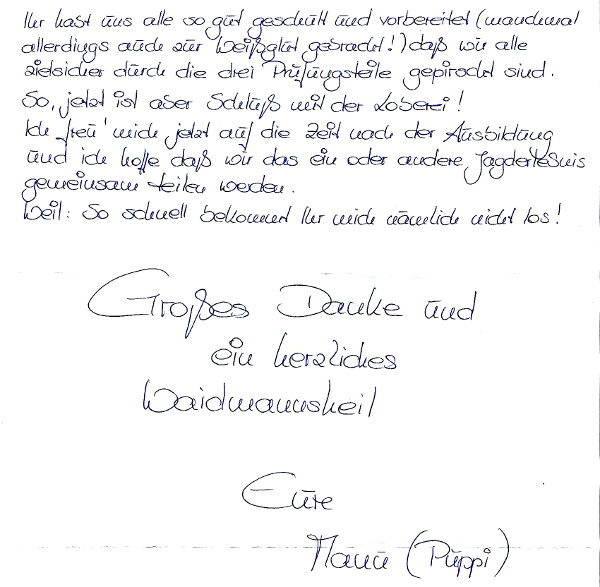 Ihr habt uns alle so gut geschult und vorbereitet (manchmal
allerdings auch zur Weißglut gebracht!) daß wir alle
zielsicher durch die drei Prüfungsteile gepirscht sind.
So, jetzt ist aber Schluß mit der Loberei!
Ich freu' mich jetzt auf die Zeit nach der Ausbildung
und ich hoffe daß wir das ein oder andere Jagderlebnis
gemeinsam teilen werden.
Weil: So schnell bekommt Ihr mich nämlich nicht los!
Großes Danke und
ein herzliches
Waidmannsheil
Eure
Manu (Puppi)